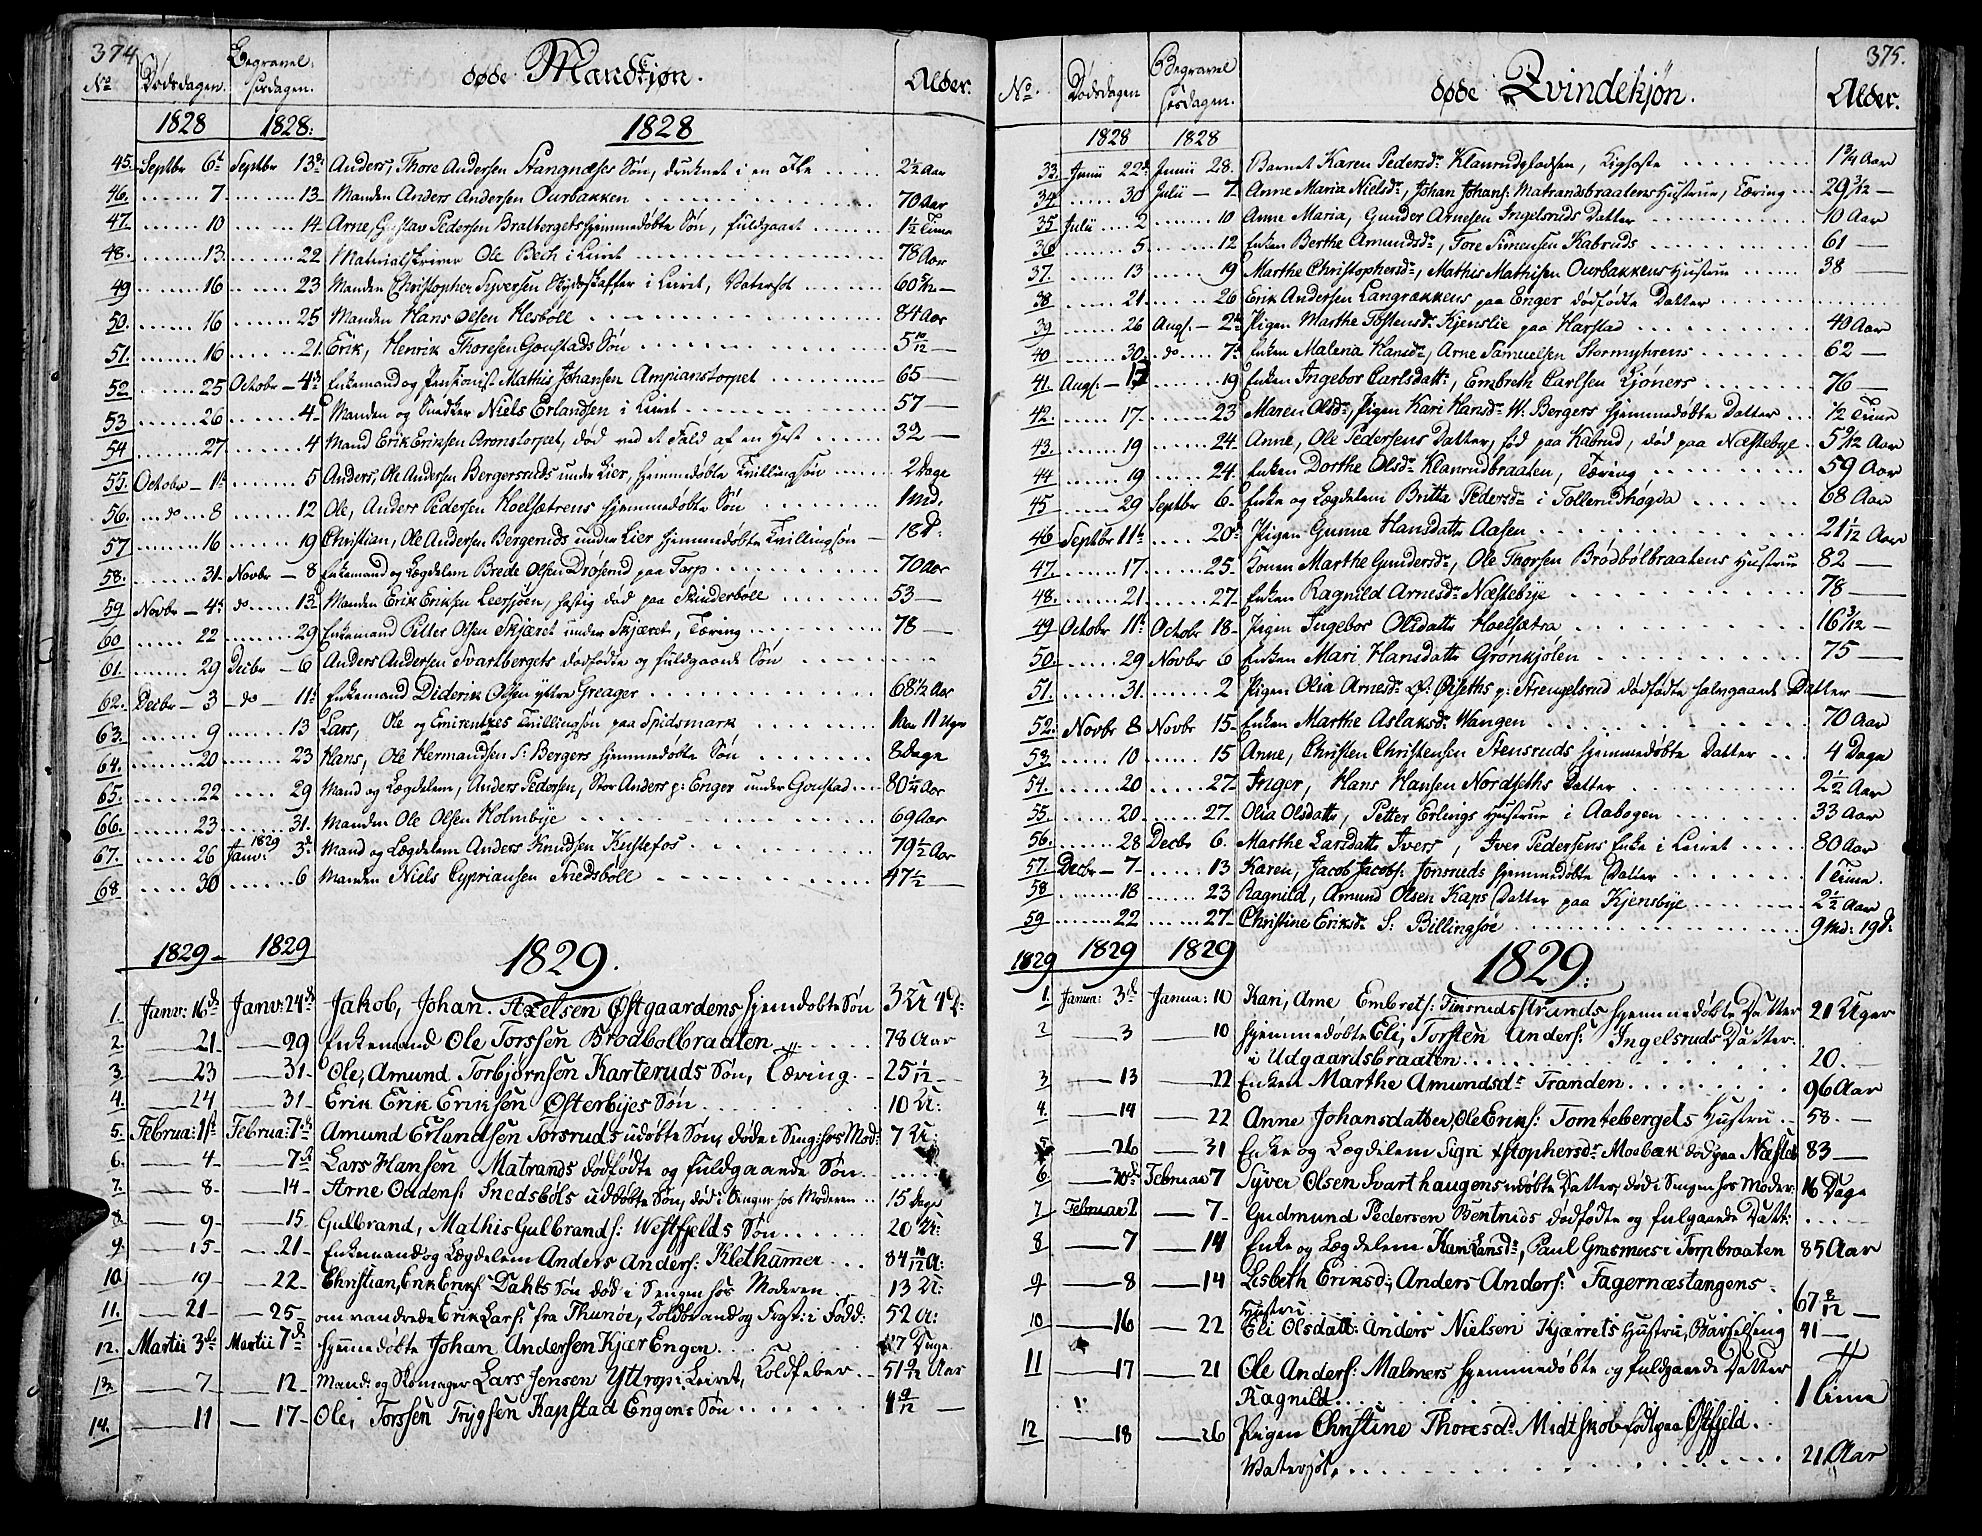 374
No Dødsdagen. Begravelsesdagen. døde Mandkjøn. Alder.
1828 1828: 1828
45. Septbr 6t Septbr 13de Anders, Thore Andersen Stangnæses Søn, druknet i en 2½ Aar
46. 7 13 Manden Anders Andersen Ourbakken 70 Aar
47. 10 14 Arne, Gustav Pedersen Bralbergets hjemmedøbte Søn, fuldgaaet 1½ Time
48. 13 22 Materialskriver Ole Bech i Leiret 78 Aar
49 16 23 Manden Christopher Syversen Skydsskaffer i Leiret, Vatersot 60 5/12
50. 16 25 Manden Hans Olsen Hesbøll 84 Aar
51. 16 21 Erik, Henrik Thoresen Gonstads Søn 5 10/12
52 25 Octobr 4de Enkemand og Pensionist Mathis Johansen Ampianstorpet 65
53 26 4 Manden og Snedker Niels Erlandsen i Leiret 57
54 27 4 Mand Erik Eriksen Aronstorpet, død ved et Fald af en Hest 32
55. Octobr 1t 5 Anders, Ole Andersen Bergersruds under Lier, hjemmedøbte Tvillingsøn 2 Dage
56. do 8 12 Ole, Anders Pedersen Hoelsætrens hjemmedøbte Søn 1 md.
57 16 19 Christian, Ole Andersen Bergeruds under Lier hjemmedøbte Tvillingsøn 18 d.
58. 31 Novbr 8 Enkemand og Lægdelem Brede Olsen Drøserud paa Torp 70 Aar
59 Novbr 4de do 13 Manden Erik Eriksen Leersjøen, hastig død paa Skinderbøll 53
60 22 29 Enkemand Petter Olsen Skjæret under Skjæret, Tæring 78
61. 29 Decbr 6 Anders Andersen Svartbergets dødfødte og fuldgaaede Søn
62. Decbr 3 do 11t Enkemand Diderik Olsen yttre Greager 68½ Aar
63. 9 13 Lars, Ole og Emirentzes Tvillingsøn paa Spidsmark 1 Aar 11 Uger
64. 20 23 Hans, Ole Hermandsen S: Bergers hjemmedøbte Søn 8 Dage
65. 22 29 Mand og Lægdelem, Anders Pedersen, Stor Anders p: Enger under Gonstad 80¼ Aar
66. 23 31. Manden Ole Olsen Holmbye 69 Aar
67. 26 1829 Janv: 3d Mand og Lægdelem Anders Knudsen Kustefos 79½ Aar
68 30 6 Manden Niels Cypriansen Snedsbøll 47½
1829 1829 1829.
1. Janv: 16de Janv: 24de Jakob, Johan Axelsen Østgaardens hjemdøbte Søn 3 U 4 D:
2. 21 29 Enkemand Ole Torssen Brodbolbraaten 78 Aar
3 23 31 Ole, Amund Torbjørnsen Karteruds Søn, Tæring 25 1/12
4. 24 31 Erik Erik Eriksen Østerbyes Søn 10 U:
5. Februa: 1st Februa: 7de Amund Erlandsen Torsruds udøbte Søn, døde i Seng: hos Mod: 7 U:
6. 4 7de Lars Hansen Matrands dødfødte og fuldgaaende Søn
7. 8 14 Arne Oudens: Snedsbøls udøbte Søn, død i Sengen hos Moderen 15 Dage
8 9 15 Gulbrand, Mathis Gulbrands: Westfjelds Søn 20 U:
9. 15 21 Enkemand og Lægdelem Anders Anders: Klethammer 84 10/12 A:
10. 19 22 Christian, Erik Eriks: Dahls Søn død i Sengen hos Moderen 13 U:
11. 21 25 omvandrede Erik Lars: fra Thunøi, Koldbrand og Frost: i Fødd: 52 A:
12. Martii 3de Martii 7de hjemmedøbte Johan Andersen Kjær Engen 7 Dage
13. 7 12 Mand: og Skomager Lars Jensen Yttrop i Leiret, Koldfeber 51 Aar
14. 11 17 Ole, Torssen Trygsen Kapstad Engens Søn 1 9/12
375.
No. Dødsdagen Begravelsesdagen. døde Qvindekjøn. Alder.
1828 1828
33. Junii 22d Junii 28. Barnet Karen Pedersdr Klanrudpladsen, Kighoste 1¾ Aar
34 30 Julii 7. Anne Maria Nielsdr, Johan Johans: Matrandsbraatens Hustrue, Tæring 29 3/12
35 Julii 2 10 Anne Maria, Gunder Arnesen Ingelsruds Datter 10 Aar
36 5 12 Enken Berthe Amundsdr, Tore Simensen Kabruds 61
37. 13 19 Marthe Christophersdr, Mathis Mathisen Ourbakkens Hustrue 38
38 21 26 Erik Andersen Langrækkens paa Enger dødfødte Datter
39 26 Augs. 2den Pigen Marthe Tostensdr Kjenslie paa Harstad 40 Aar
40 30 do 7. Enken Malena Hansdr, Arne Samuelsen Stormyhrens 62
41. Augs. 17 19 Enken Ingebor Carlsdatr, Embreth Carlsen Kjøners 76
42. 17. 23 Maren Olsdr, Pigen Kari Hansdr W. Bergers hjemmedøbte Datter ½ Time
43. 19 24. Anne, Ole Pedersens Datter, fød paa Kabrud, død paa Næstebye 5 9/12 Aar
44 19 24. Enken Dorthe Olsdr Klanrudbraaten, Tæring 59 Aar
45 29 Septbr 6. Enke og Lægdelem Britta Pedersdr i Tollerudhøgda 68 Aar
46 Septbr 11t 20de Pigen Gunne Hansdattr Aasen 21½ Aar
47. 17 25. Konen Marthe Gundersdr, Ole Thorsen Brødbølbraatens Hustrue 82
48. 21 27. Enken Ragnild Arnesdr Næstebye 78
49 Octobr 11t Octobr 18 Pigen Ingebor Olsdattr Hoelsætra 16 3/12
50. 29 Novbr 6 Enken Mari Hansdatter Gronkjølen 75
51. 31. 2 Pigen Olia Arnesdr Ø: Øiseths p: Strengelsrud dødfødte halvgaaende Datter
52. Novbr 8 Novbr 15 Enken Marthe Aslaksdr Wangen 70 Aar
53. 10 15 Anne, Christen Christensen Stensruds hjemmedøbte Datter 4 Dage
54. 20 27 Inger, Hans Hansen Nordseths Datter 2½ Aar
55. 20 27. Olia Olsdatter, Petter Erlings Hustrue i Aabogen 33 Aar
56. 28 Decbr 6. Marthe Larsdattr Ivers, Iver Pedersens Enke i Leiret 80 Aar
57. Decbr 7 13 Karen, Jacob Jacobs: Jonsruds hjemmedøbte Datter 1 Time.
58 18 23 Ragnild, Amund Olsen Kaps Datter paa Kjensbye 2½ Aar
59 22 27. Christine Eriksdr S: Billingsøe 9 Md: 19 d:
1829 1829 1829 1829:
1. Janua: 3de Janua: 10 Kari, Arne Embrets: Finsrudsstrands hjemmedøbte Datter 21 Uger
2 3 10 hjemmedøbte Eli, Torsten Anders: Ingelsruds Datter
i Udgaardsbraaten 20.
3 13 22 Enken Marthe Amundsdr Tranden 96 Aar
4. 14 22 Anne Johansdatter, Ole Eriks: Tomtebergets Hustru 58.
5 26 31 Enke og Lægdelem Sigri Xstophersdr Moebæk død paa Næsteb 83
6 30d Februar 7 Syver Olsen Svarthaugens udøbte Datter, død i Sengen hos Moder: 16 Dage
7 Februar 2 7 Gudmund Pedersen Bentruds dødfødte og fulgaaende Datt:
8 7 14 Enke og Lægdelem Kari Larsdr, Paul Grasmus: i Torpbraaten 85 Aar
9 8 14 Lisbeth Eriksd:, Anders Anders: Fagernæstangens
Hustru 67 8/12
10 16 22 Eli Olsdatt: Anders Nielsen Kjærrets Hustru, Barselseng 41
11 17 21 Ole Anders: Malmers hjemmedøbte og fuldgaaede Datter
Ragnild 1 time
12 18 26 Pigen Christine Thoresdr Midtskov født paa Østfjeld
Watersot 21 Aar